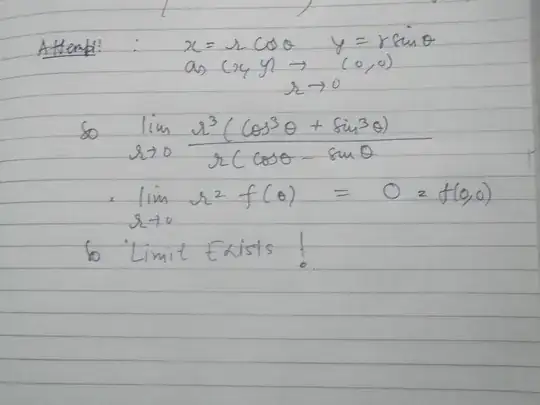 Attempt: : x = r Cosθ y = r sinθ
as (x, y) → (0,0)
r→0
So lim r→0 r³(Cos³θ + Sin³θ) / r(Cosθ - sinθ
. lim r→0 r² f(θ) = 0 = f(0,0)
So Limit Exists !